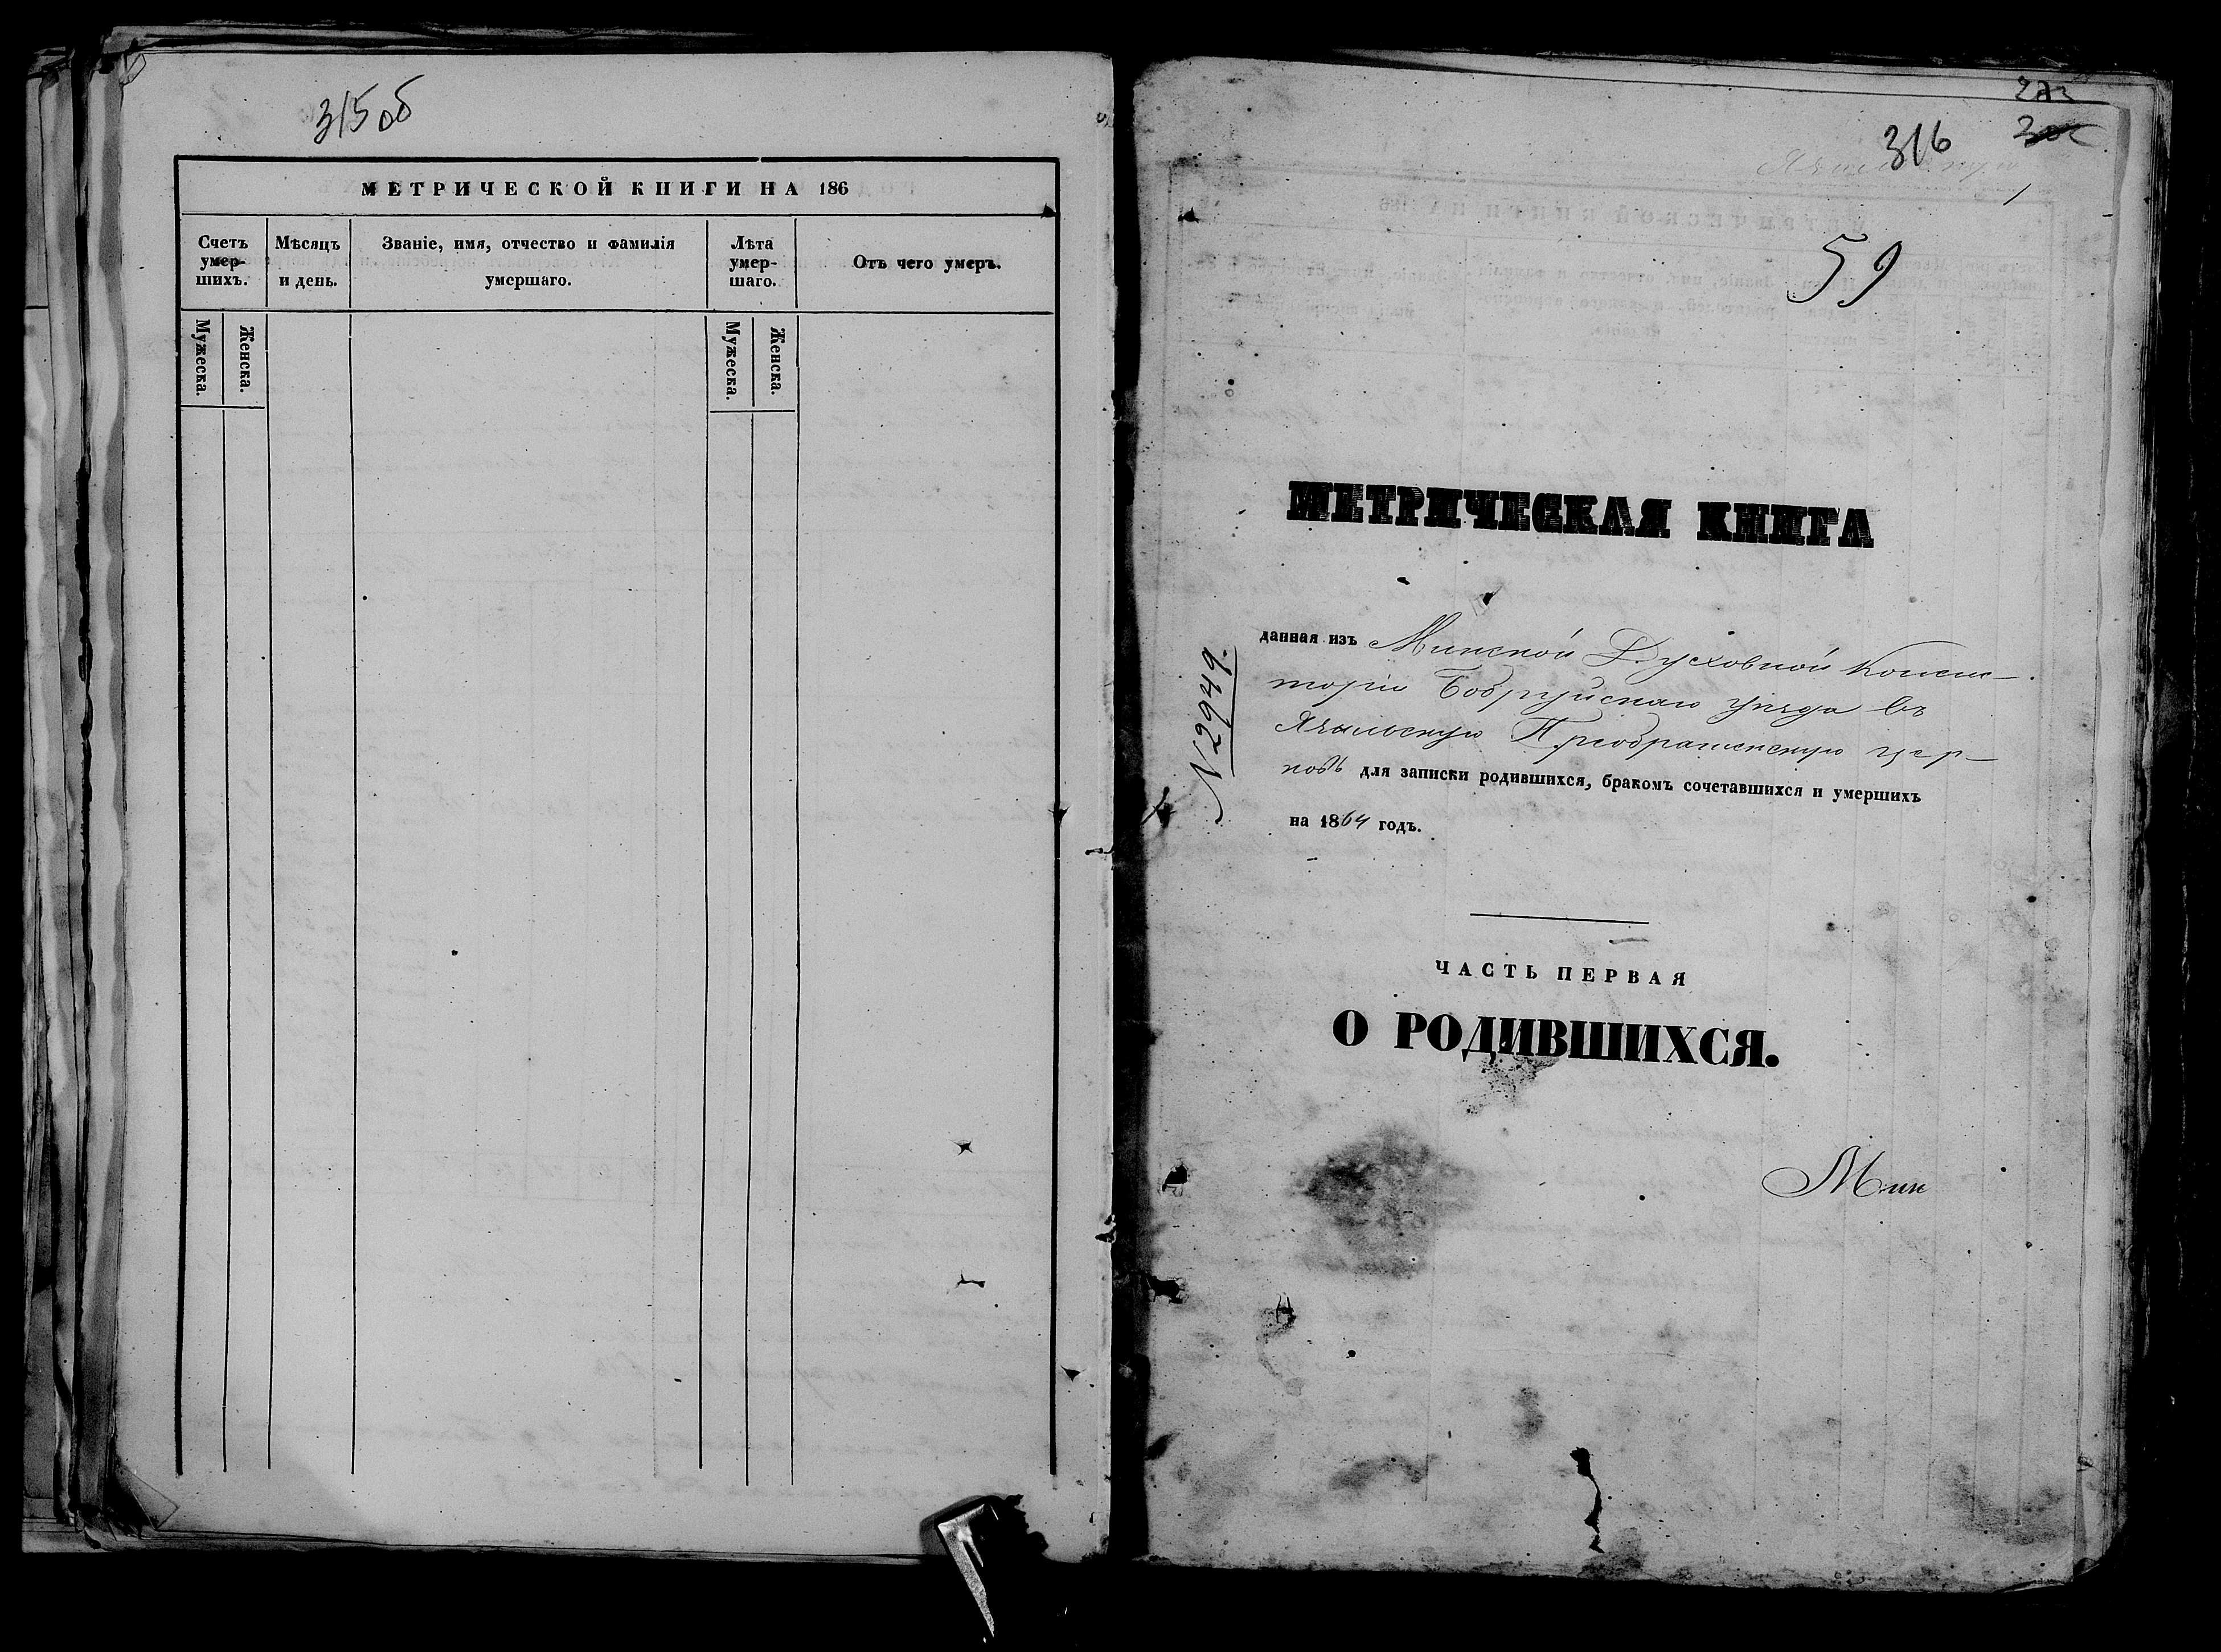 315 об
МЕТРИЧЕСКОЙ КНИГИ НА 186
Счетъ умер- шихъ.
Мѣсяцъ и день.
Званіе, имя, отчество и фамилія умершаго.
Лѣта умер- шаго.
Отъ чего умеръ.
Мужеска.
Женска.
Мужеска.
Женска.
316
1
59
МЕТРИЧЕСКАЯ КНИГА
N 2949.
данная изъ Минской Духовной Консис-
торіи Бобруйскаго уѣзда въ
Преображенскую цер-
ковь для записки родившихся, бракомъ сочетавшихся и умершихъ
на 1864 годъ.
ЧАСТЬ ПЕРВАЯ
О РОДИВШИХСЯ.
Мин